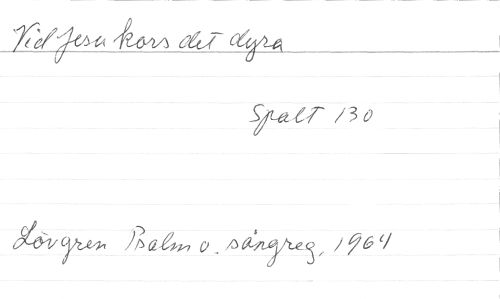 Vid Jesu kors det dyra
Spalt 130
Lövgren Psalm o. sångreg, 1964